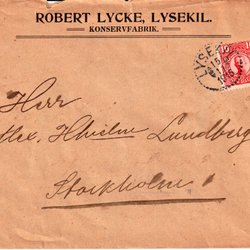 ROBERT LYCKE, LYSEKIL.
KONSERVFABRIK.
LYSEKIL
Herr
Lundberg
Stockholm